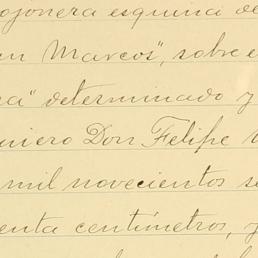 ojonera esquina de
en Marcos", sobre e
a" determinado y
quiero Don Felipe
mil novecientos se
enta centímetros, y